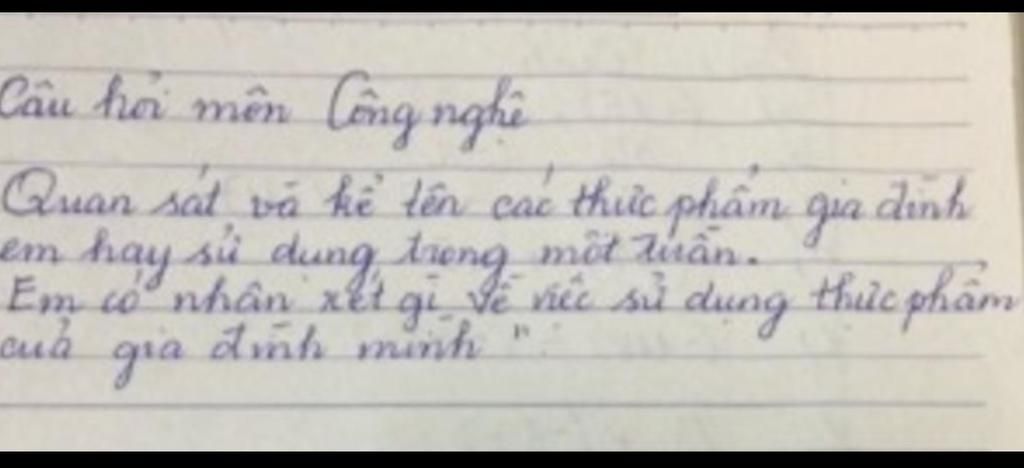 Câu hỏi môn Công nghệ
Quan sát và kể tên các thức phẩm gia đình
em hay sử dụng trong một tuần.
Em có nhận xét gì về việc sử dụng thức phẩm
cuả gia đình mình "